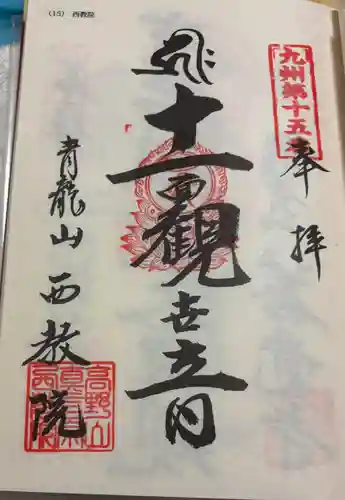 (15) 西教院
九州第十五番
奉拝
十一面観世音
青龍山 西教院
高野山
真言宗